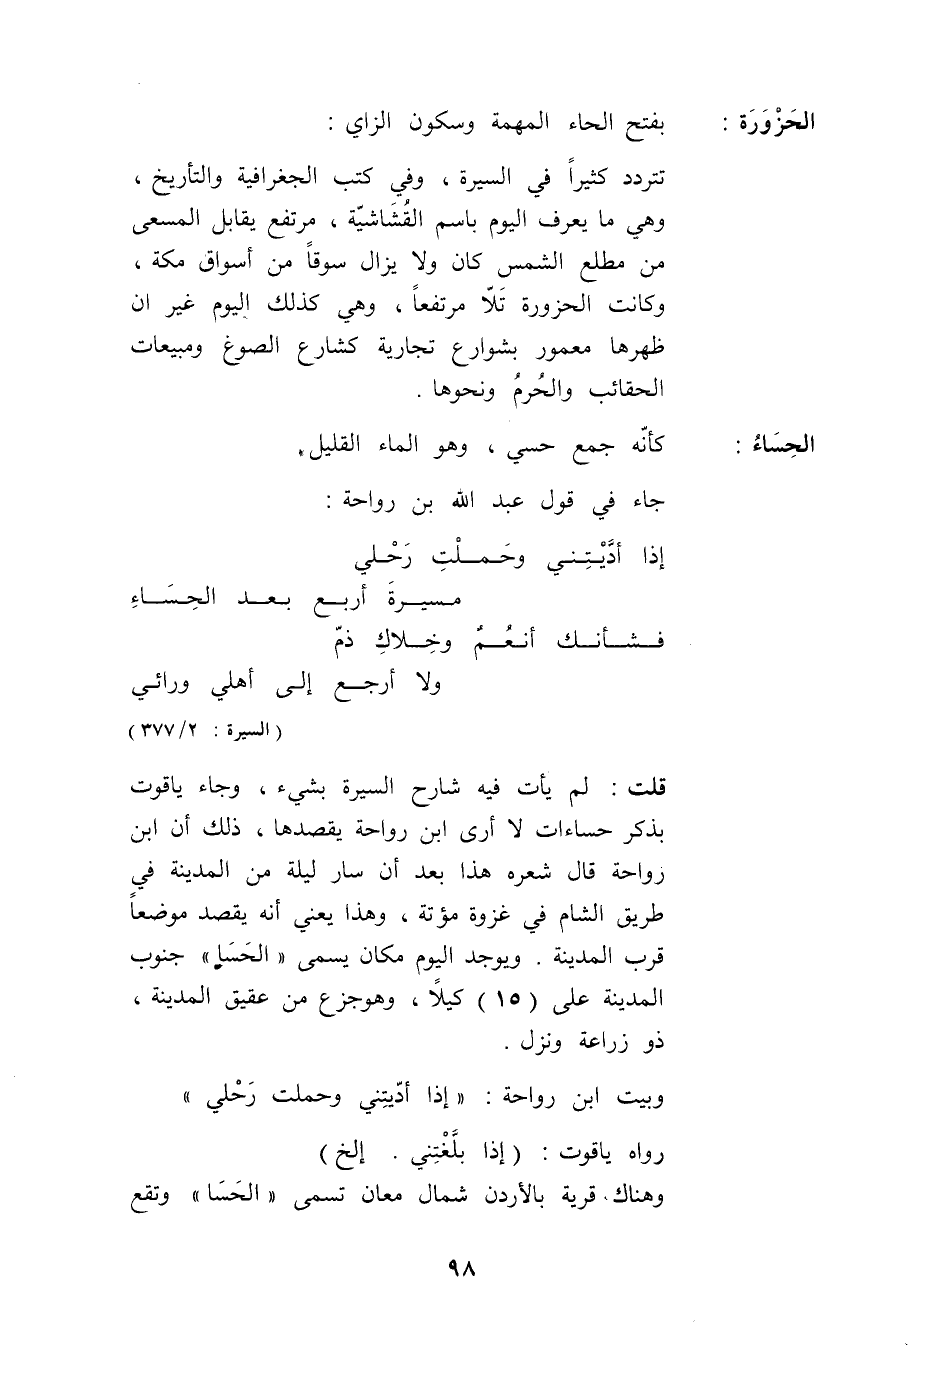 الحَزْوَرَة : بفتح الحاء المهمة وسكون الزاي :
تتردد كثيراً في السيرة ، وفي كتب الجغرافية والتأريخ ،
وهي ما يعرف اليوم باسم القُشَاشيّة ، مرتفع يقابل المسعى
من مطلع الشمس كان ولا يزال سوقاً من أسواق مكة ،
وكانت الحزورة تَلّا مرتفعاً ، وهي كذلك اليوم غير ان
ظهرها معمور بشوارع تجارية كشارع الصوغ ومبيعات
الحقائب والحُرمُ ونحوها .
الحِسَاءُ : كأنّه جمع حسي ، وهو الماء القليل.
جاء في قول عبد الله بن رواحة :
إذا أدَّيْتِني وحَملْتِ رَحْلي
مسيرةَ أربع بعد الحِسَاءِ
فشأنك أنعُمٌ وخِلاكِ ذمّ
ولا أرجع إلى أهلي ورائي
( السيرة : ٣٧٧/٢ )
قلت : لم يأت فيه شارح السيرة بشيء ، وجاء ياقوت
بذكر حساءات لا أرى ابن رواحة يقصدها ، ذلك أن ابن
رواحة قال شعره هذا بعد أن سار ليلة من المدينة في
طريق الشام في غزوة مؤتة ، وهذا يعني أنه يقصد موضعاً
قرب المدينة . ويوجد اليوم مكان يسمى « الحَسَا » جنوب
المدينة على ( ١٥ ) كيلًا ، وهوجزع من عقيق المدينة ،
ذو زراعة ونزل .
وبيت ابن رواحة : « إذا أدّيتِني وحملت رَحْلي »
رواه ياقوت : ( إذا بلَّغْتِني . إلخ )
وهناك قرية بالأردن شمال معان تسمى « الحَسَا » وتقع
٩٨